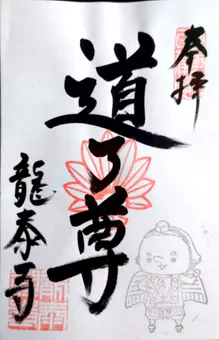 奉拝
道了尊
龍泰寺